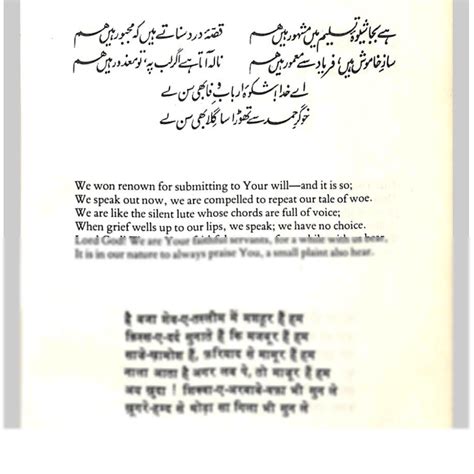 ہے بجا شیوۂ تسلیم میں مشہور ہیں ہم قصۂ درد سناتے ہیں کہ مجبور ہیں ہم
سازِ خاموش ہیں، فریاد سے معمور ہیں ہم نالہ آتا ہے اگر لب پہ تو معذور ہیں ہم
اے خدا شکوۂ اربابِ وفا بھی سن لے
خوگرِ حمد سے تھوڑا سا گلا بھی سن لے
We won renown for submitting to Your will—and it is so;
We speak out now, we are compelled to repeat our tale of woe.
We are like the silent lute whose chords are full of voice;
When grief wells up to our lips, we speak; we have no choice.
Lord God! We are Your faithful servants, for a while with us bear,
It is in our nature to always praise You, a small plaint also hear.
है बजा में मशहूर हैं हम
सुनाते हैं कि मजबूर हैं हम
हैं, फ़रियाद से मामूर हैं हम
नाला आता है अगर लब पे, तो हैं हम
अय ख़ुदा ! भी सुन ले
से थोड़ा सा गिला भी सुन ले